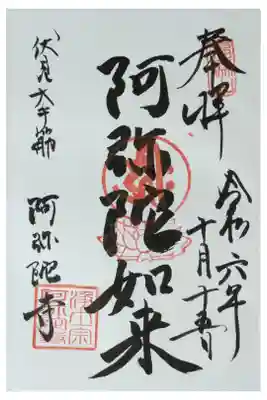 奉拝
令和六年
十月十五日
阿弥陀如来
伏見大手筋
阿弥陀寺
浄土宗